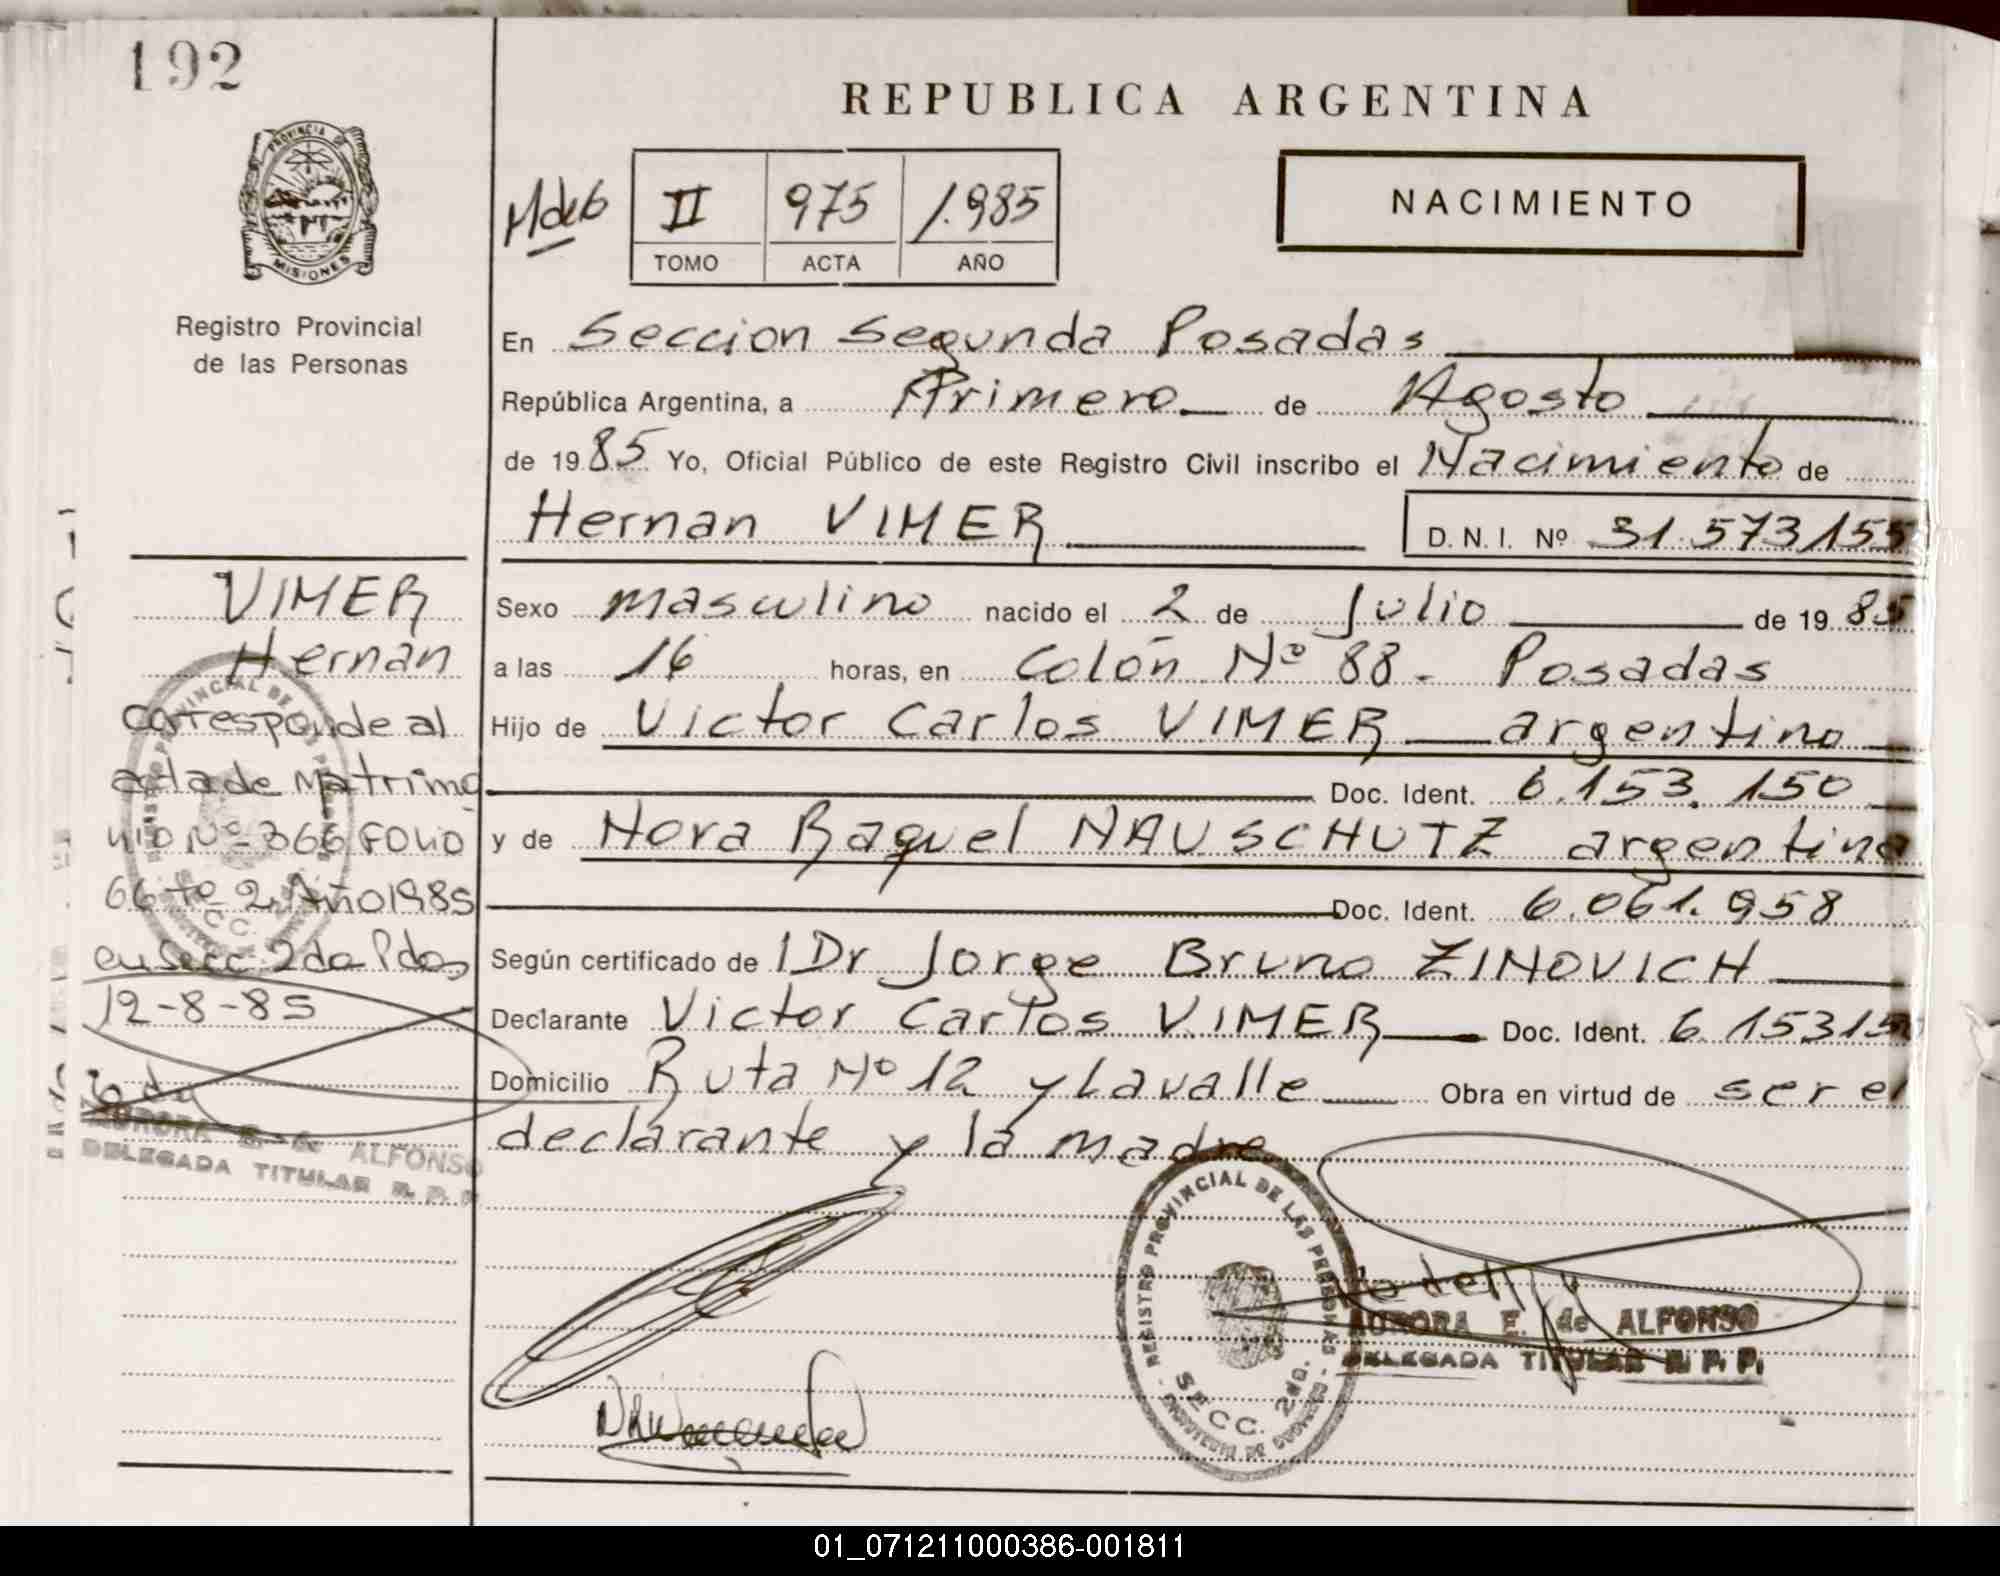 192
REPUBLICA ARGENTINA
PROVINCIA DE
MISIONES
II 975 1.985
TOMO ACTA AÑO
NACIMIENTO
Registro Provincial
de las Personas
En Seccion Segunda Posadas
República Argentina, a Primero de Agosto
de 1985 Yo, Oficial Público de este Registro Civil inscribo el Nacimiento de
Hernan VIMER D. N. I. Nº 31.573,155
Sexo masculino nacido el 2 de Julio de 1985
a las 16 horas, en Colón Nº 88 - Posadas
Hijo de Victor Carlos VIMER argentino
Doc. Ident. 6.153.150
y de Nora Raquel NAUSCHUTZ argentina
Doc. Ident. 6.061.958
Según certificado de Dr Jorge Bruno ZINOVICH
Declarante Victor Carlos VIMER Doc. Ident. 6.153150
Domicilio Ruta Nº 12 y Lavalle Obra en virtud de ser el
declarante y la madre
VIMER
Hernan
corresponde al
acta de Matrimo
nio Nº 366 FOLIO
66 tº 2 Año 1985
en Secc 2da Pdas
12-8-85
AURORA E. de ALFONSO
DELEGADA TITULAR R. P. P.
REGISTRO PROVINCIAL DE LAS PERSONAS
SECC. 2da.
AURORA E. de ALFONSO
DELEGADA TITULAR R. P. P.
01_071211000386-001811